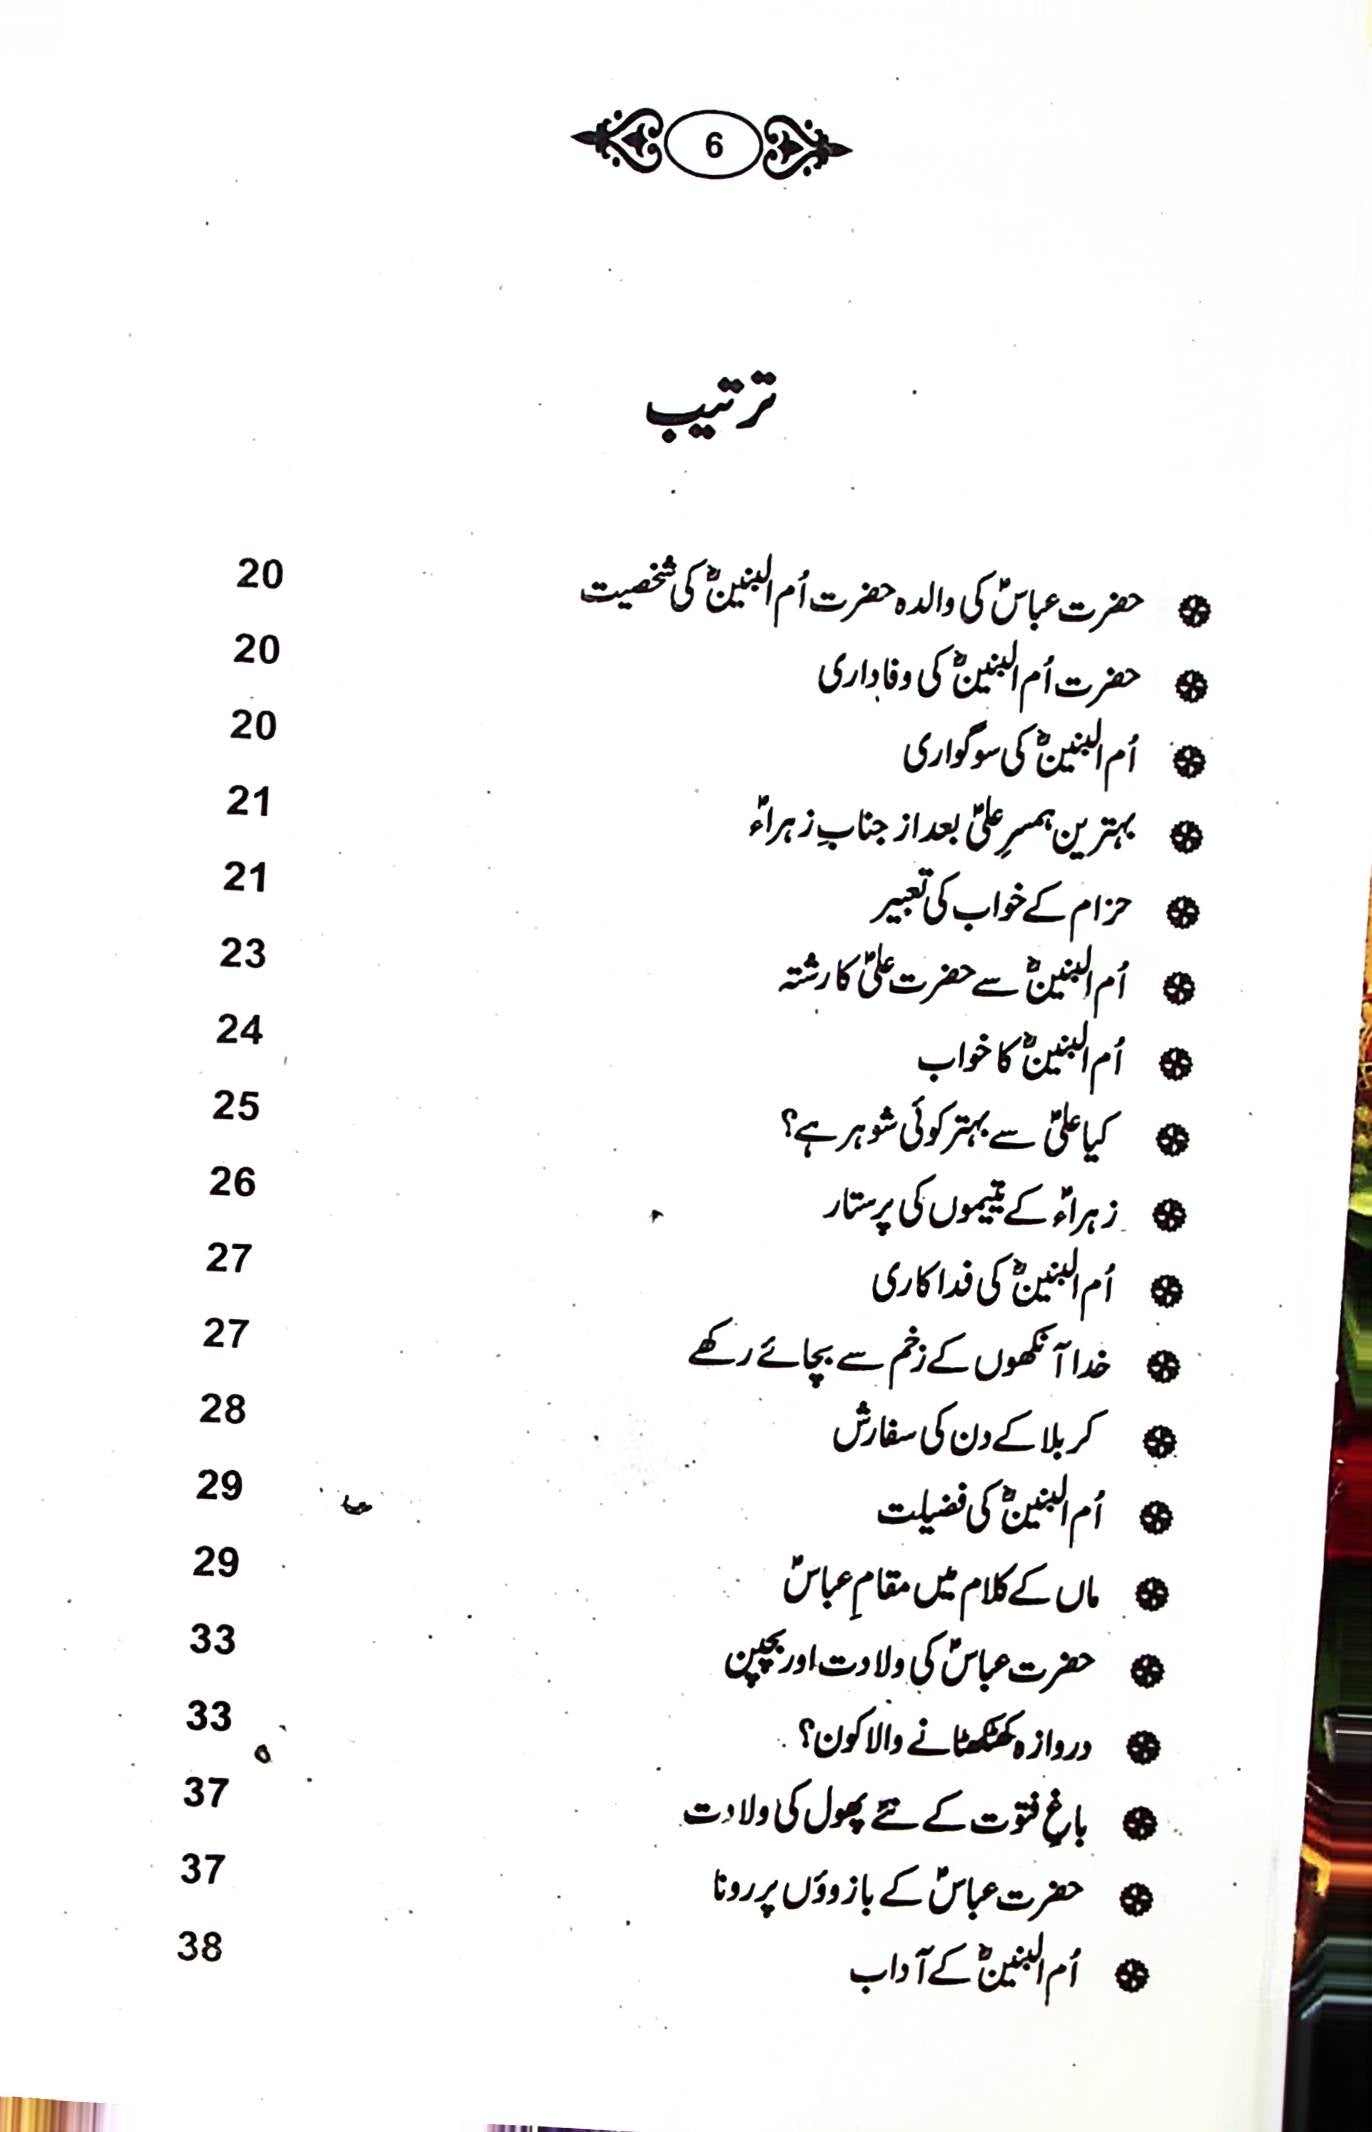 6
ترتیب
حضرت عباسؑ کی والدہ حضرت اُم البنینؑ کی شخصیت 20
حضرت اُم البنینؑ کی وفاداری 20
اُم البنینؑ کی سوگواری 20
بہترین ہمسرِ علیؑ بعد از جنابِ زہراءؑ 21
حزام کے خواب کی تعبیر 21
اُم البنینؑ سے حضرت علیؑ کا رشتہ 23
اُم البنینؑ کا خواب 24
کیا علیؑ سے بہتر کوئی شوہر ہے؟ 25
زہراءؑ کے یتیموں کی پرستار 26
اُم البنینؑ کی فداکاری 27
خدا آنکھوں کے زخم سے بچائے رکھے 27
کربلا کے دن کی سفارش 28
اُم البنینؑ کی فضیلت 29
ماں کے کلام میں مقامِ عباسؑ 29
حضرت عباسؑ کی ولادت اور بچپن 33
دروازہ کھٹکھٹانے والا کون؟ 33
باغِ فتوت کے نئے پھول کی ولادت 37
حضرت عباسؑ کے بازوؤں پر رونا 37
اُم البنینؑ کے آداب 38